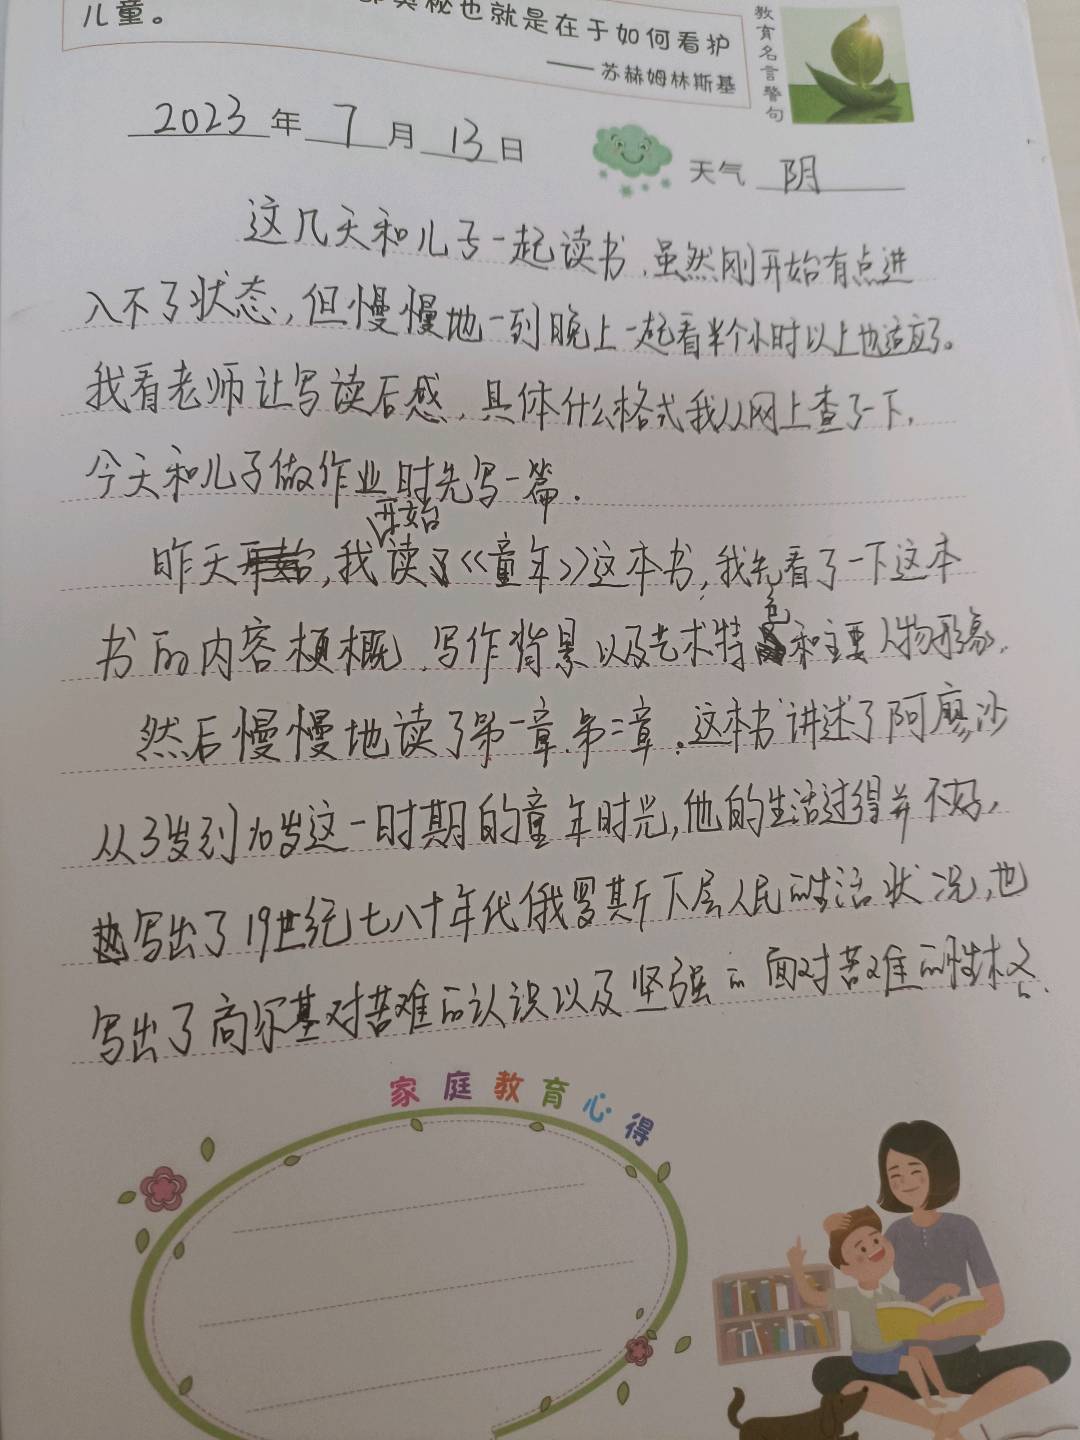 奥秘也就是在于如何看护
儿童。
——苏赫姆林斯基
教育名言警句
2023年7月13日
天气 阴
这几天和儿子一起读书,虽然刚开始有点进
入不了状态,但慢慢地一到晚上一起看半个小时以上也适应了。
我看老师让写读后感,具体什么格式我从网上查了一下,
今天和儿子做作业时先写一篇.
开始
昨天,我读了《童年》这本书,我先看了一下这本
书的内容梗概,写作背景以及艺术特色和主要人物形象,
然后慢慢地读了第一章.第二章。这本书讲述了阿廖沙
从3岁到10岁这一时期的童年时光,他的生活过得并不好,
写出了19世纪七八十年代俄罗斯下层人民的生活状况,也
写出了高尔基对苦难的认识以及坚强的面对苦难的性格.
家庭教育心得